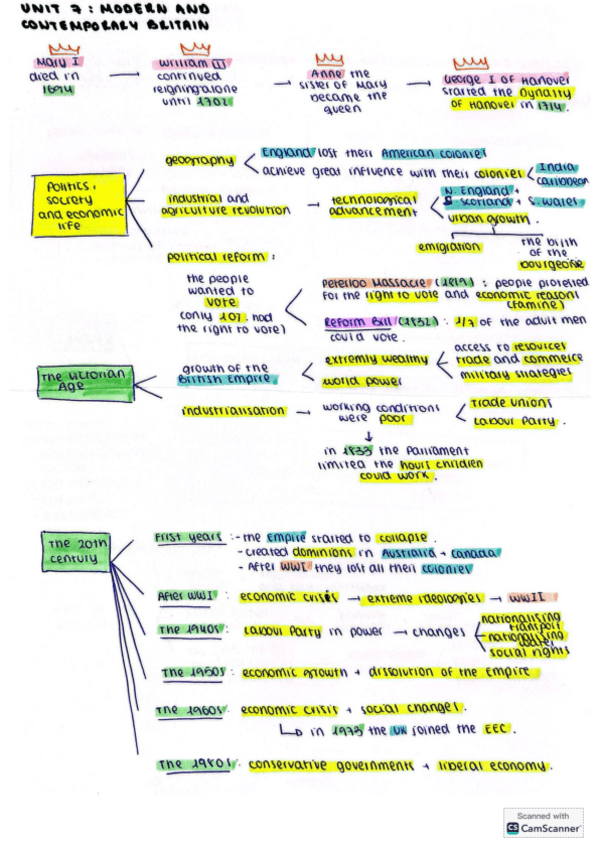 UNIT 7: MODERN AND
CONTEMPORARY BRITAIN
Mary I
died in
1694
William III
continued
reigning alone
until 1702
Anne the
sister of Mary
became the
queen
George I of Hanover
started the Dynasty
of Hanover in 1714.
Politics,
society
and economic
life
geography
England lost their American colonies
achieve great influence with their colonies
India
Caribbean
industrial and
agriculture revolution
technological
advancement
N. England +
S Scotland + S. Wales
urban growth.
emigration
the birth
of the
bourgeoisie
political reform:
the people
wanted to
vote
(only 10%. had
the right to vote)
Peterloo Massacre (1819): people protested
for the right to vote and economic reasons
(famine)
Reform Bill (1832): 1/7 of the adult men
could vote.
The Victorian
Age
growth of the
British Empire
extremely wealthy
world power
access to resources
trade and commerce
military strategies
industrialisation
working conditions
were poor
Trade Unions
Labour Party.
in 1833 the Parliament
limited the hours children
could work.
The 20th
century
First years: - the Empire started to collapse.
- created dominions in Australia + Canada
- After WWI they lost all their colonies
After WWI: economic crisis → extreme ideologies → WWII
The 1940s: Labour Party in power → changes
nationalising
transport
nationalising
water
social rights
The 1950s: economic growth + dissolution of the Empire
The 1960s: economic crisis + social changes.
in 1973 the UK joined the EEC.
The 1980s: conservative governments + liberal economy.
Scanned with
CS CamScanner